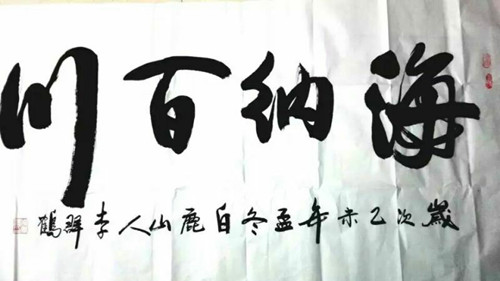 海纳百川
歲次乙未年孟冬白鹿山人李群鶴